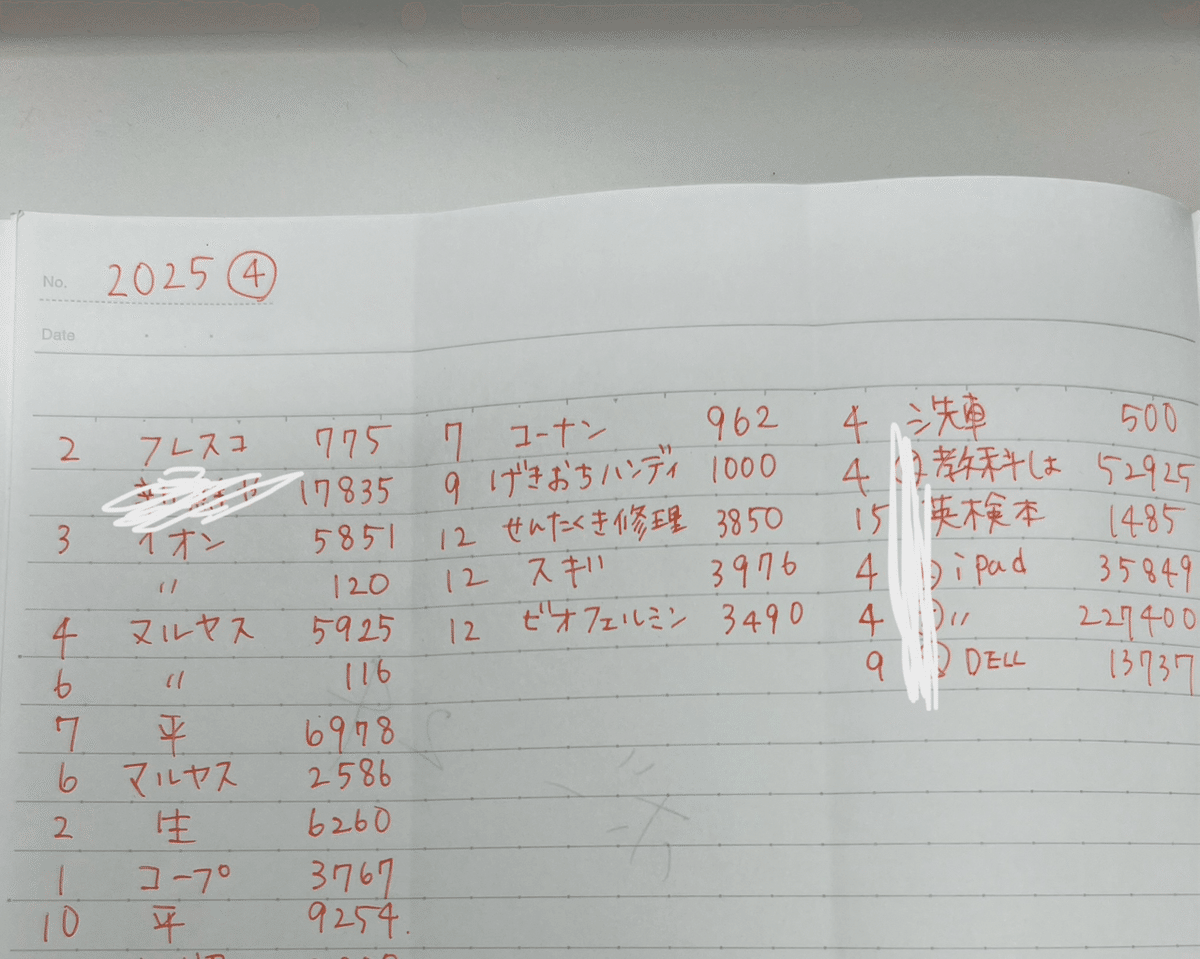 No. 2025 ④
Date
2 フレスコ 775
17835
3 イオン 5851
〃 120
4 マルヤス 5925
6 〃 116
7 平 6978
6 マルヤス 2586
2 生 6260
1 コープ 3767
10 平 9254
7 コーナン 962
9 げきおちハンディ 1000
12 せんたくき修理 3850
12 スギ 3976
12 ビオフェルミン 3490
4 洗車 500
4 教科しょ 52925
15 英検本 1485
4 ipad 35849
4 〃 227400
9 DELL 13737